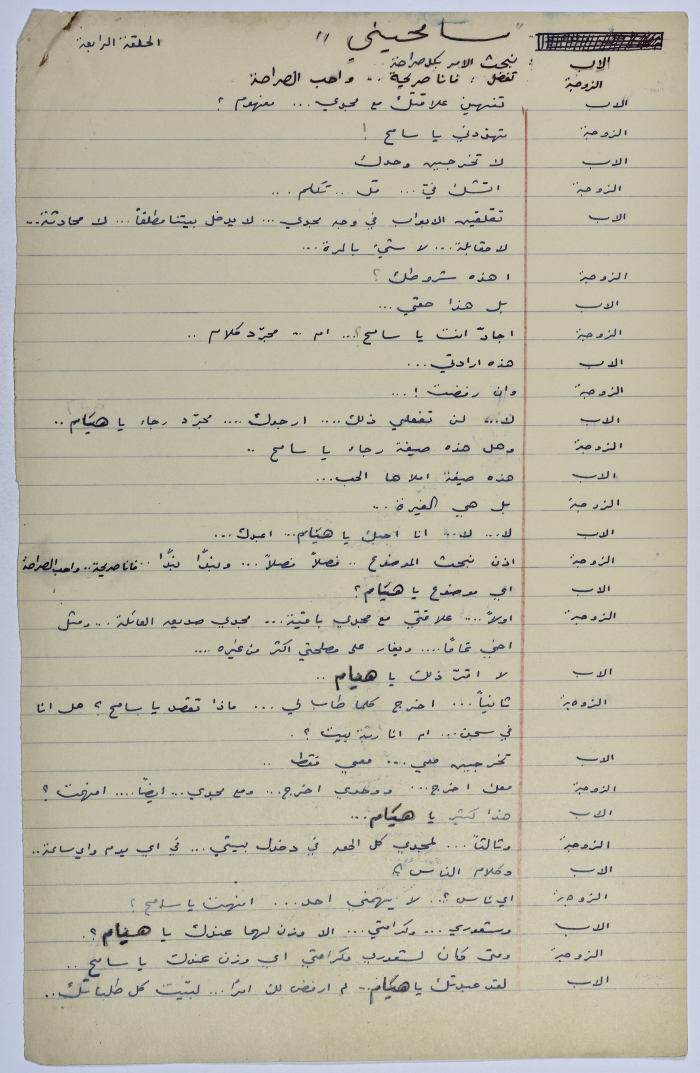 الحلقة الرابعة
" سامحيني "
الاب : نبحث الامر بكل صراحة
الزوجة : تفضل : فانا صريحة .. واحب الصراحة
الاب تنهين علاقتك مع مجدي ... مفهوم ؟
الزوجة تهددني يا سامح !
الاب لا تخرجين وحدك
الزوجة اتشك فيّ ... قل .. تكلم ...
الاب تغلقين الابواب في وجه مجدي ... لا يدخل بيتنا مطلقاً ... لا محادثة ..
لا مقابلة ... لا شيء بالمرة ...
الزوجة اهذه شروطك ؟
الاب بل هذا حقي ...
الزوجة اجادّ انت يا سامح ؟... ام .. مجرّد كلام ..
الاب هذه ارادتي ...
الزوجة وان رفضت ! ...
الاب لا ... لن تفعلي ذلك .... ارجوك .... مجرّد رجاء يا هيام ..
الزوجة وهل هذه صيغة رجاء يا سامح ..
الاب هذه صيغة املاها الحب ...
الزوجة بل هي الغيرة ...
الاب لا ... لا ... انا احبك يا هيام ... اعبدك ...
الزوجة اذن نبحث الموضوع .. فصلاً فصلاً ... وبنداً بنداً .. فانا صريحة .. واحب الصراحة
الاب اي موضوع يا هيام ؟
الزوجة اولاً ... علاقتي مع مجدي باقية ... مجدي صديق العائلة ... ومثل
اخي تماماً .... ويغار على مصلحتي اكثر من غيره ....
الاب لا اقرّ ذلك يا هيام ..
الزوجة ثانياً ... اخرج كلما طاب لي ... ماذا تقصد يا سامح ؟ هل انا
في سجن ... ام انا ربة بيت ؟ .
الاب تخرجين معي ... معي فقط ..
الزوجة معك اخرج ... ووحدي اخرج ... ومع مجدي ... ايضاً .... افهمت ؟
الاب هذا كثير يا هيام ...
الزوجة وثالثاً ... لمجدي كل الحق في دخول بيتي ... في اي يوم واي ساعة ..
الاب وكلام الناس ؟
الزوجة اي ناس ؟ .. لا يهمني احد ... افهمت يا سامح ؟
الاب وشعوري ... وكرامتي ... الا وزن لهما عندك يا هيام ؟ .
الزوجة ومتى كان لشعوري وكرامتي اي وزن عندك يا سامح ..
الاب لقد عبدتك يا هيام .. لم ارفض لك امراً ... لبيت كل طلباتك ..